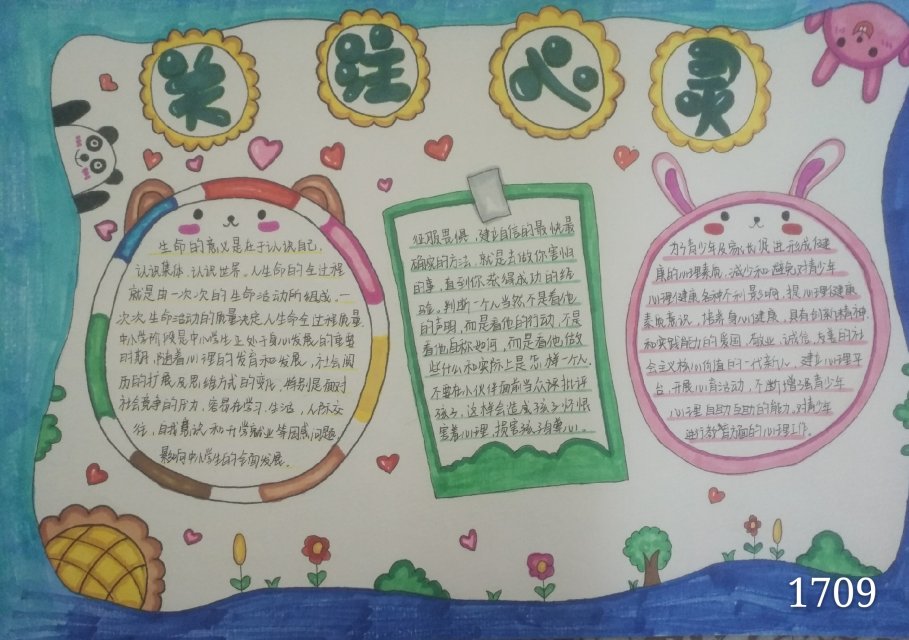 关注心灵
生命的意义是在于认识自己,
认识集体,认识世界。人生命的全过程
就是由一次次的生命活动所组成。一
次次生命活动的质量决定人生命全过程质量.
中小学阶段是中小学生正处于身心发展的重要
时期,随着心理的发育和发展,社会阅
历的扩展及思维方式的变化,特别是面对
社会竞争的压力,容易在学习,生活,人际交
往,自我意识和升学就业等困惑问题
影响中小学生的全面发展.
征服畏惧,建立自信的最快最
确实的方法,就是去做你害怕
的事,直到你获得成功的经
验。判断一个人当然不是看他
的声明,而是看他的行动,不是
看他自称如何,而是看他做
些什么和实际上是怎样一个人.
不要在小伙伴面前当众批评
孩子,这样会造成孩子怀恨
害羞心理,损害孩子自尊心.
为了青少年及家长促进形成健
康的心理素质,减少和避免对青少年
心理健康各种不利影响,提心理健康
素质意识,培养身心健康,具有创新精神
和实践能力的爱国,敬业,诚信,友善的社
会主义核心价值的一代新人,建立心理平
台,开展心育活动,不断增强青少年
心理自助互助的能力,对青少年
进行教智方面的心理工作.
1709